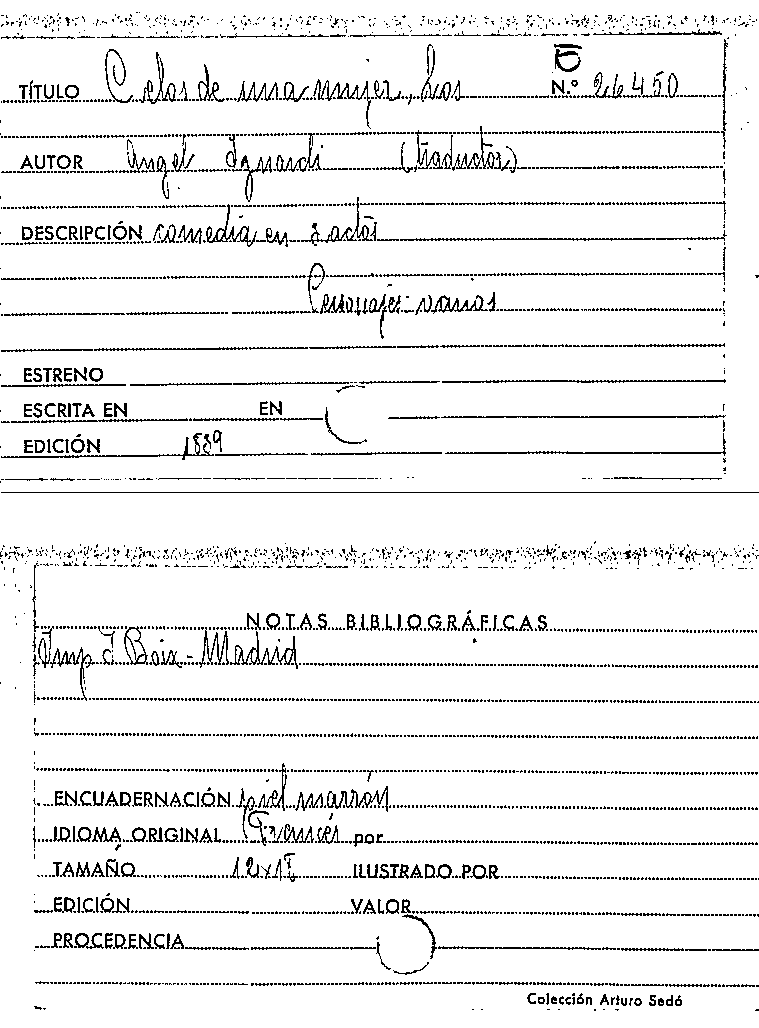 TÍTULO Celos de una mujer, Los N.º 26450
AUTOR Angel Iznardi (traductor)
DESCRIPCIÓN comedia en 3 actos
Personajes: varios
ESTRENO
ESCRITA EN EN
EDICIÓN 1839
NOTAS BIBLIOGRÁFICAS
Imp J Boix - Madrid
ENCUADERNACIÓN piel marrón
IDIOMA ORIGINAL Francés por
TAMAÑO ILUSTRADO POR
EDICIÓN VALOR
PROCEDENCIA
Colección Arturo Sedó